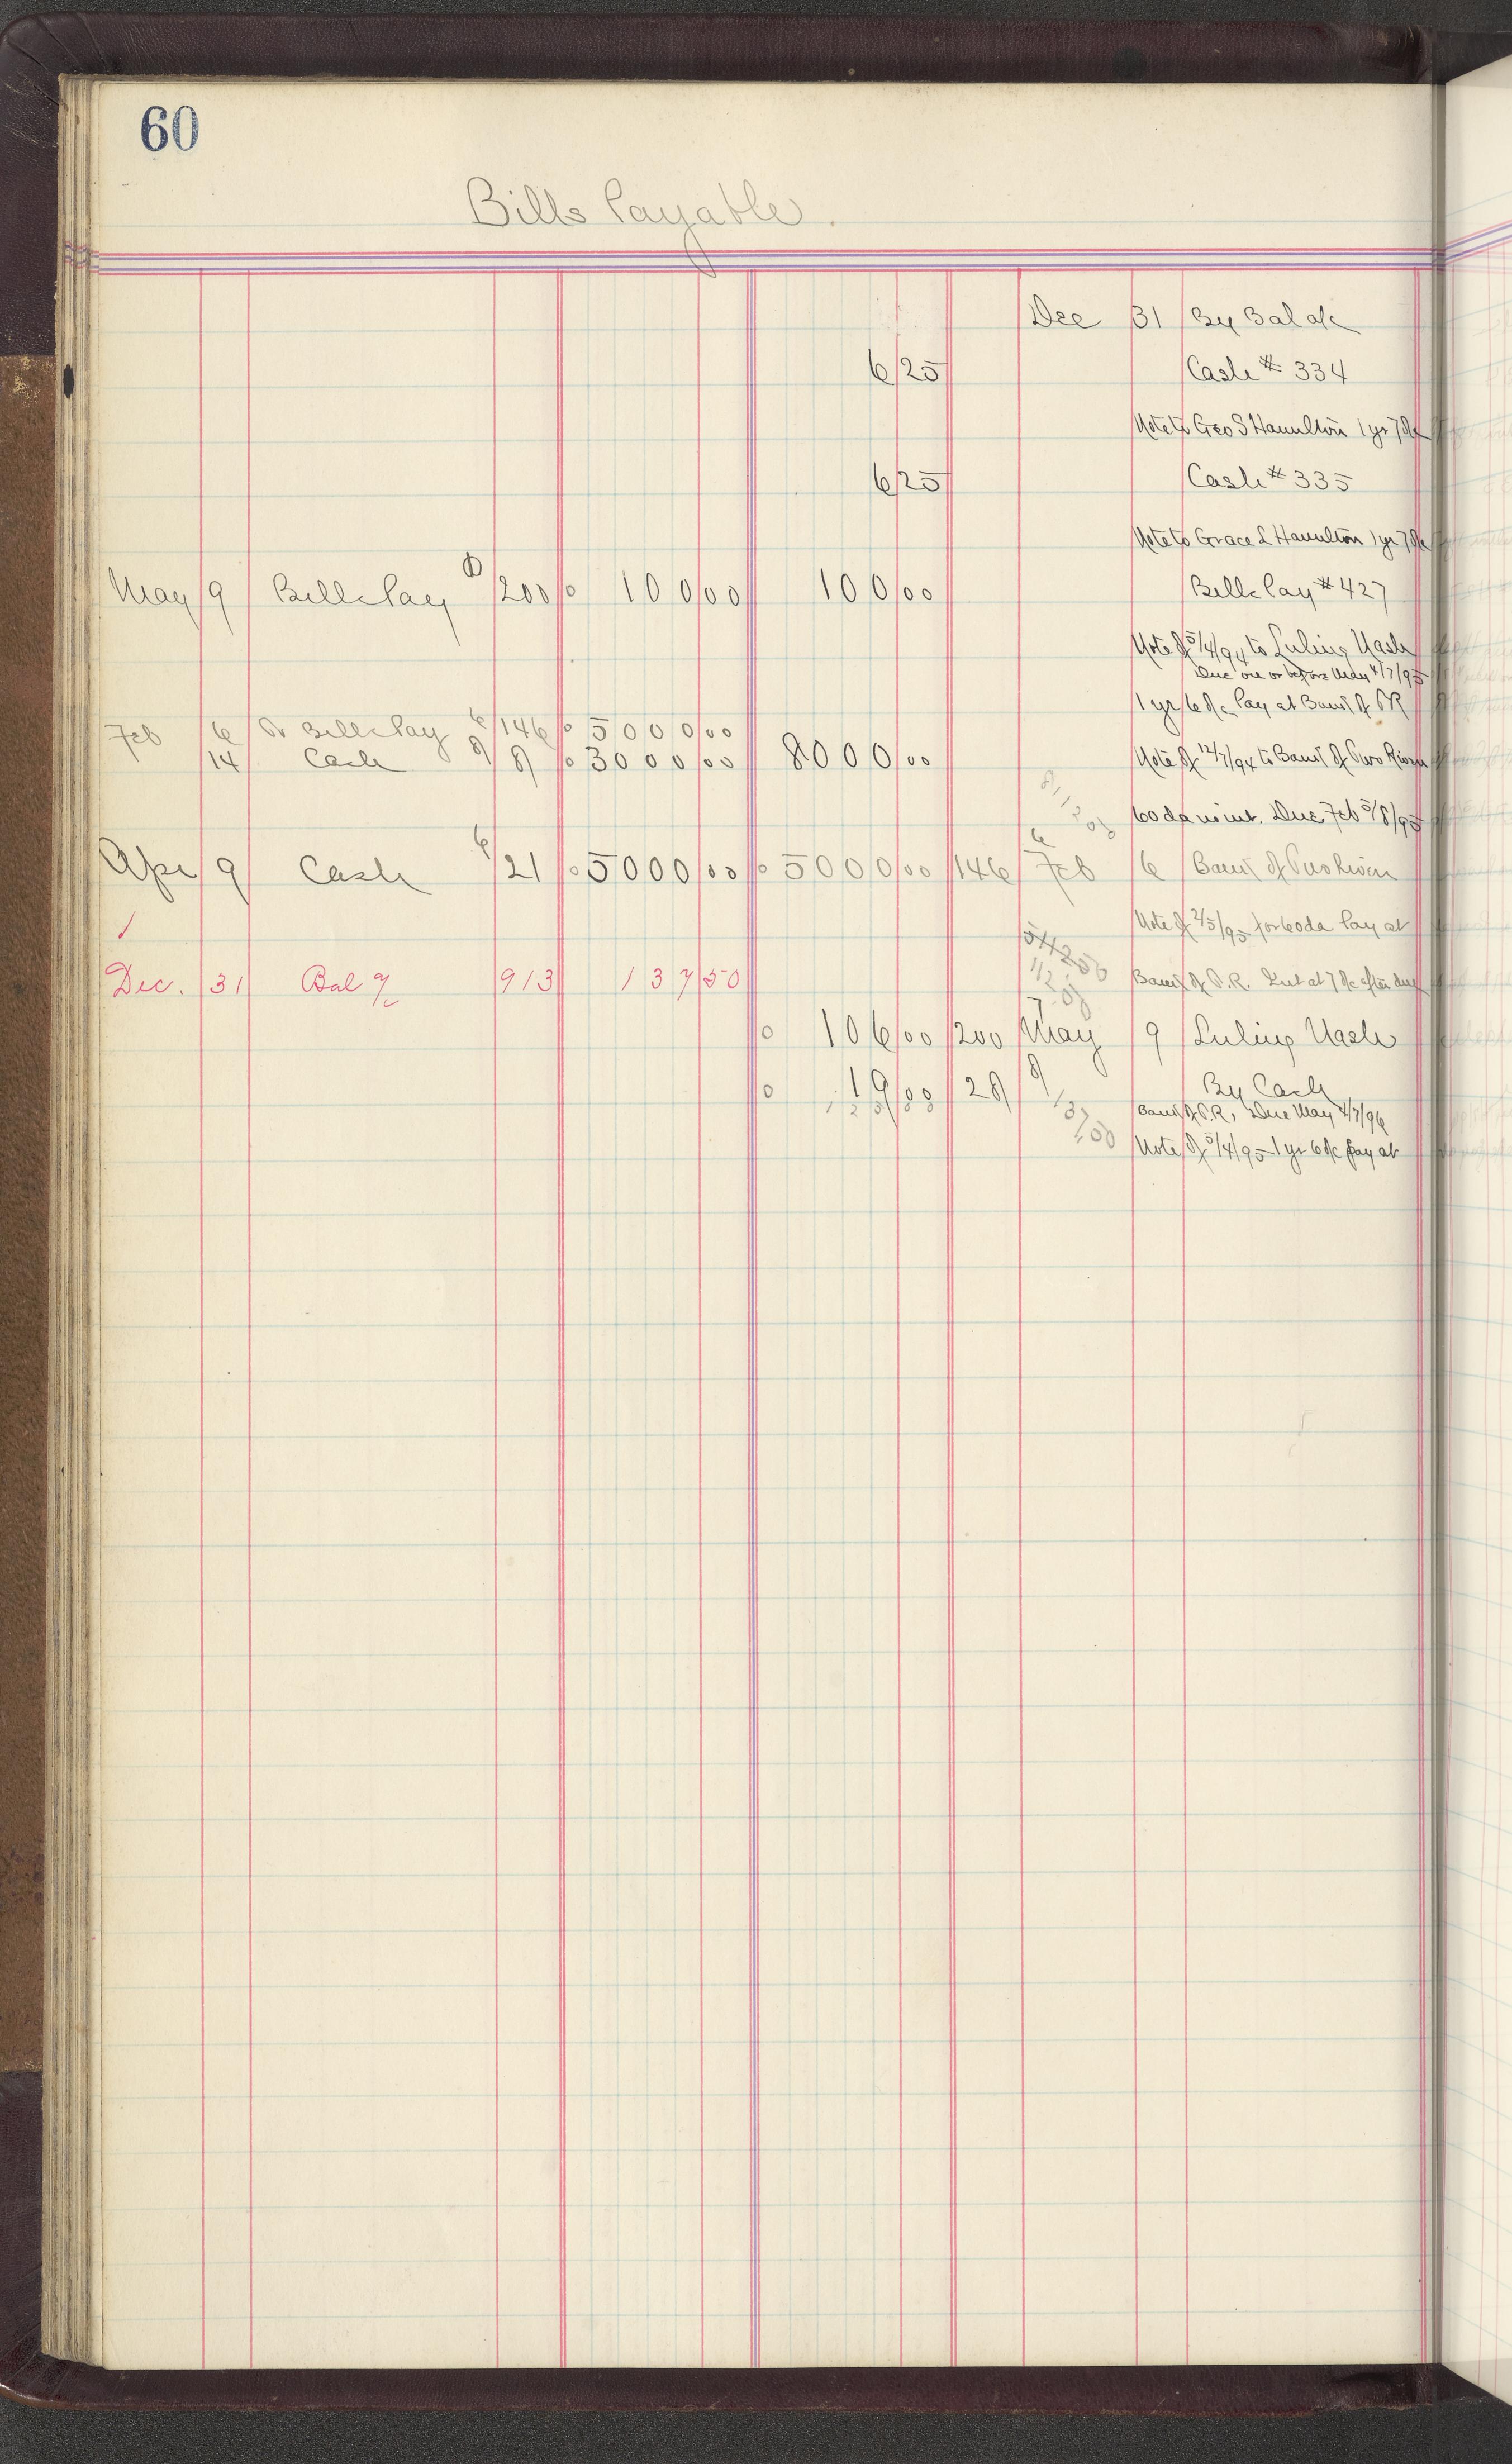 60
Bills Payable.
Dec 31 By Bal a/c
6 25 Cash # 334
Note to Geo S Hamilton 1 yr 7%
6 25 Cash # 335
Note to Grace L Hamilton 1 yr 7%
May 9 Bills Pay 200 100 00 100 00 Bills Pay # 427
Note of 5/4/94 to Luling Nash
Due on or before May 4/7/95
1 yr 6% Pay at Bank of T R
Feb 6 Bills Pay 146 5000 00
14 Cash 8 3000 00 8000 00 Note of 12/7/94 to Bank of Two Rivers
60 da no int. Due Feb 5/8/95
Apr 9 Cash 21 5000 00 5000 00 146 Feb 6 Bank of Two Rivers
Note of 2/5/95 for 60 da Pay at
Dec. 31 Bal a/c 913 137 50 Bank of T.R. Int at 7% after due
106 00 200 May 9 Luling Nash
19 00 28 By Cash
Bank of T.R, Due May 4/7/96
Note of 5/4/95 1 yr 6% pay at